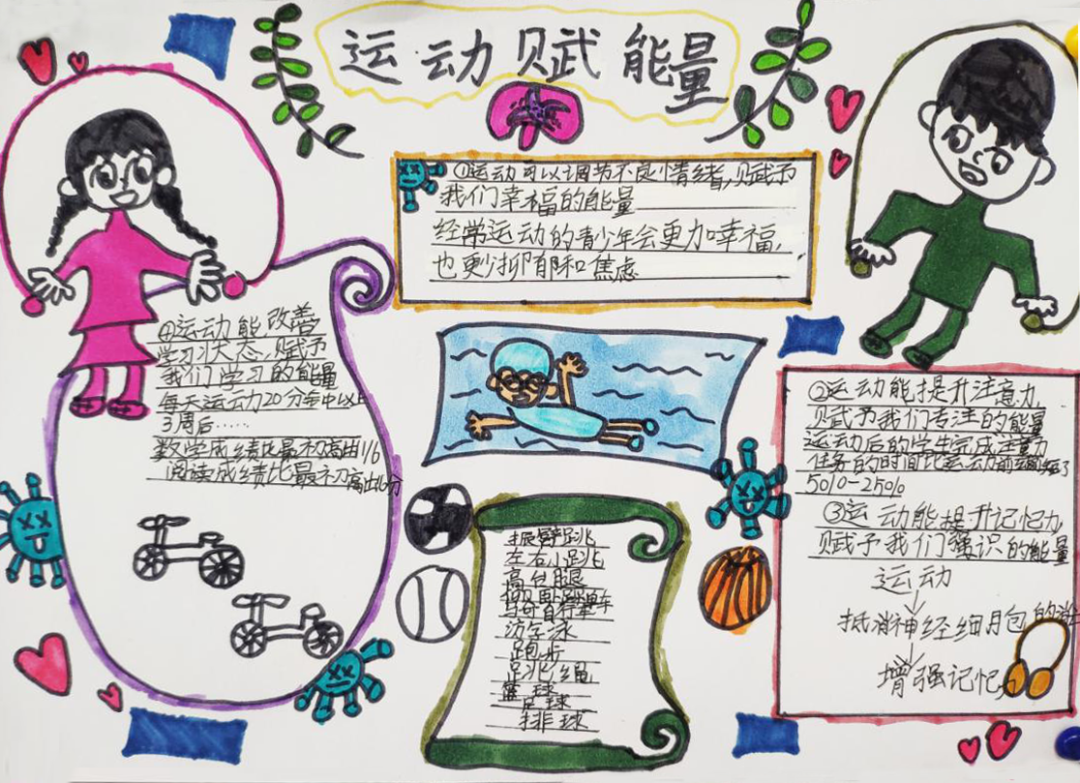 运动赋能量
①运动可以调节不良情绪,赋予
我们幸福的能量
经常运动的青少年会更加幸福,
也更少抑郁和焦虑
④运动能改善
学习状态,赋予
我们学习的能量
每天运动20分钟以上
3周后……
数学成绩比最初高出1/6
阅读成绩比最初高出16分
②运动能提升注意力,
赋予我们专注的能量
运动后的学生完成注意力
任务的时间比运动前缩短了
5%-25%
③运动能提升记忆力
赋予我们强识的能量
运动
抵消神经细胞的
增强记忆力
振臂跳
左右小跳
高台腿
仰卧踩单车
骑自行车
游泳
跑步
跳绳
篮球
足球
排球